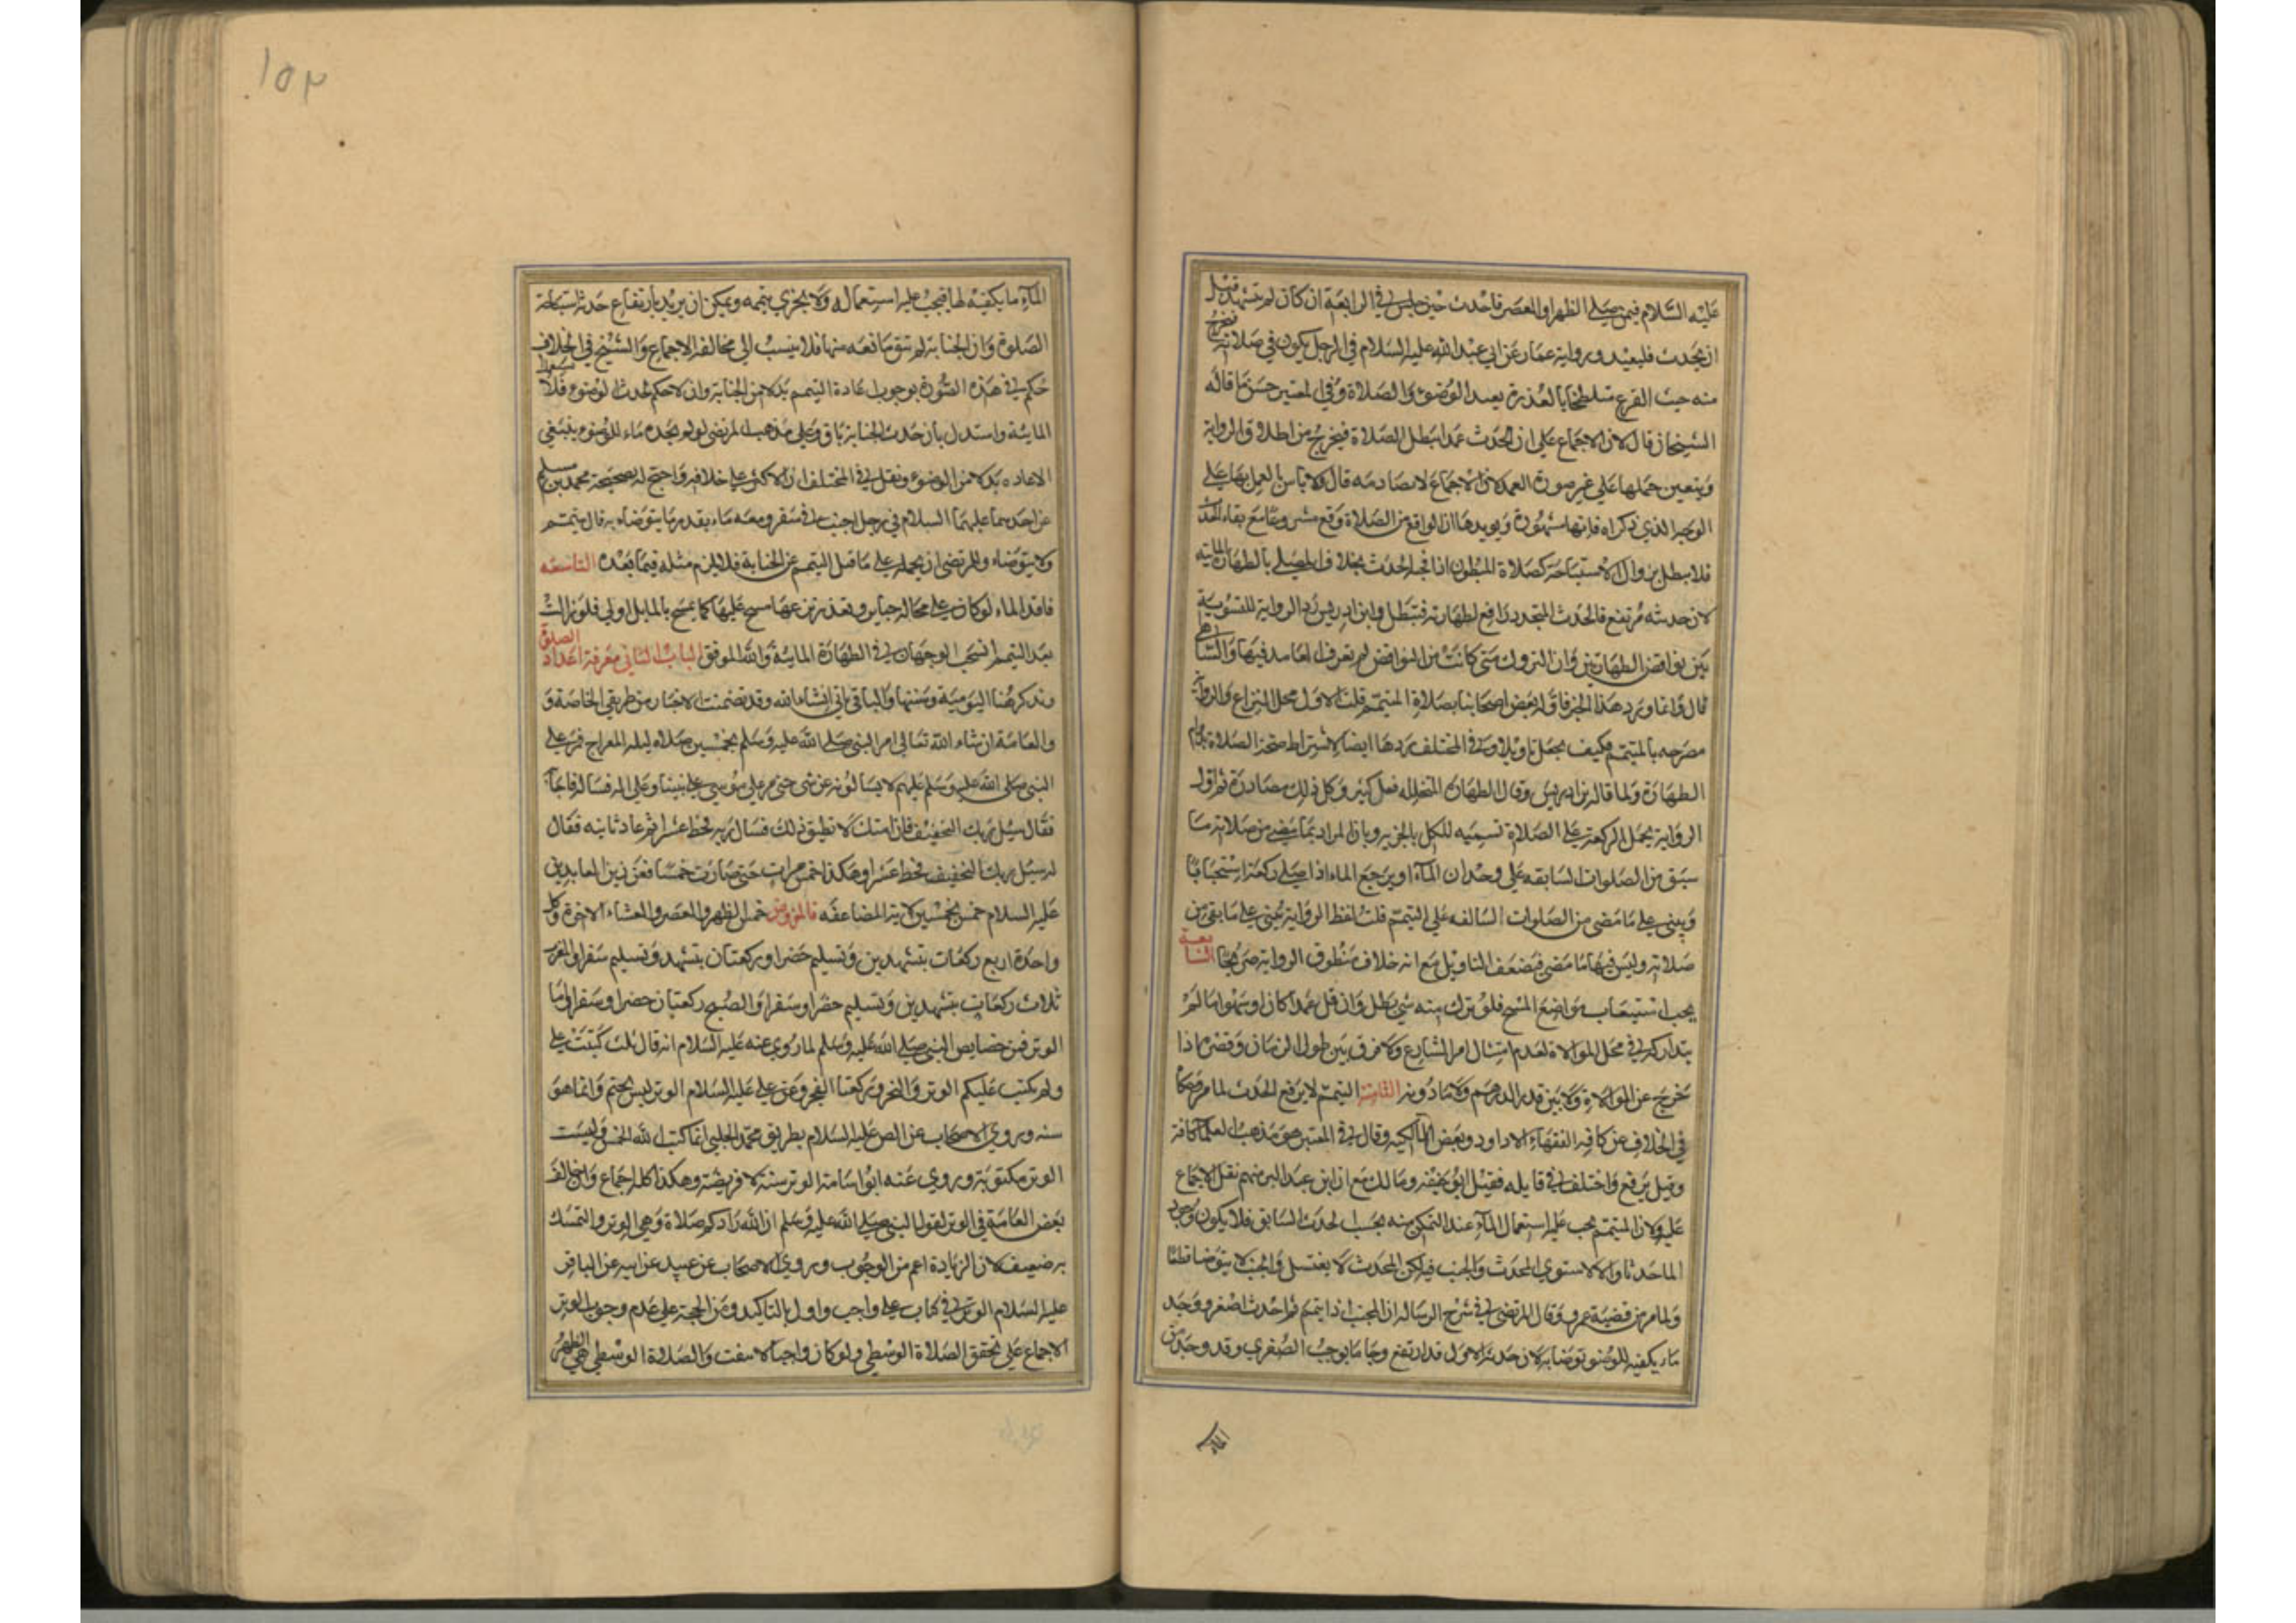 عليه السلام فيمن صلى الظهر او العصر فاحدث حين جلس في الرابعة ان كان لم يتشهد قبل
ان يحدث فليعيد وبرواية عمار عن ابي عبد الله عليه السلام في الرجل يكون في صلاته فيخرج
منه حب القرع متلطخا بالعذرة يعيد الوضوء والصلاة وفي المعتبر حسن ما قاله
الشيخان قال لان الاجماع على ان الحدث عمدا يبطل الصلاة فيخرج من اطلاق الرواية
ويتعين حملها على غير صورة العمد لان الاجماع لا تصادمه قال ولا باس بالعمل بها على
الوجه الذي ذكراه فانها مشهورة ويويدها ان الواقع من الصلاة وقع مشروعا مع بقاء الحدث
فلا يبطل بزوال الاستباحة كصلاة المبطون اذا فجاه الحدث بخلاف المصلي بالطهارة المائية
لان حدثه مرتفع فالحدث المتجدد رافع لطهارته فتبطل وابن ادريس رد الرواية للتسوية
بين نواقض الطهارتين وان التروك متى كانت من النواقض لم يعرف العامد فيها والساهي
قال وانما ورد هذا الخبر فاوله بعض اصحابنا بصلاة المتيمم قلت الاول محل النزاع والرواية
مصرحه بالمتيمم فكيف يجعل تاويلا وفي المختلف ردها ايضا لاشتراط صحة الصلاة بدوام
الطهارة ولما قاله ابن ادريس وقال الطهارة المتخلله فعل كثير وكل ذلك مصادرة ثم اول
الرواية بحمل الركعة على الصلاة تسميه للكل بالجزء وبان المراد بما مضى من صلاته ما
سبق من الصلوات السابقه على وجدان الماء او يرجع الماء اذا صلى ركعة استحبابا
ويبني على ما مضى من الصلوات السالفه على التيمم قلت لفظ الرواية يبني على ما بقي من
صلاته وليس فيها ما مضى فيضعف التاويل مع انه خلاف منطوق الرواية صريحا السابعة
يجب استيعاب مواضع المسح فلو ترك منه شي بطل وان قل عمدا كان او سهوا ما لم
يتداركه في محل الموالاة لعدم امتثال امر الشارع ولا فرق بين طول الزمان وقصره اذا
تخرج عن الموالاة ولا بين قدر الدرهم ولا ما دونه الثامنة التيمم لا يرفع الحدث لما مر وحكاه
في الخلاف عن كافه الفقهاء الا داود وبعض المالكيه وقال في المعتبر هو مذهب العلماء كافة
وقيل يرفع واختلف في قايله فقيل ابو حنيفه ومالك مع ان ابن عبد البر منهم نقل الاجماع
عليه ولان المتيمم يجب عليه استعمال الماء عند التمكن منه بحسب الحدث السابق فلا يكون وجود
الما حدثا والا لاستوى المحدث والجنب فيه لكن المحدث لا يغتسل والجنب لا يتوضا قطعا
ولما مر من قضية عمرو وقال المرتضى في شرح الرساله ان المجنب اذا تيمم ثم احدث اصغر ووجد
ماء يكفيه للوضوء توضا به لان حدثه الاول قد ارتفع وجا ما يوجب الصغرى وقد وجد من
الماء
١٥٣
الماء ما يكفيه لها فيجب عليه استعماله ولا يجزي تيممه ويمكن ان يريد بارتفاع حدثه استباحة
الصلوة وان الجنابة لم تبق مانعه منها فلا ينسب الى مخالفه الاجماع والشيخ في الخلاف
حكم في هذه الصورة بوجوب اعادة التيمم بدلا من الجنابة وان لا حكم لحدث الوضوء فلا تستعمل
المائية واستدل بان حدث الجنابة باق وعلى مذهب المرتضى لو لم يجد ماء للوضوء ينبغي
الاعاده بدلا من الوضوء ونقل في المختلف ان الاكثر على خلافه واحتج له بصحيحة محمد بن مسلم
عن احدهما عليهما السلام في رجل اجنب في سفر ومعه ماء بقدر ما يتوضاء به قال يتيمم
ولا يتوضاء وللمرتضى ان يحمله على ما قبل التيمم عن الجنابة فلا يلزم مثله فيما بعده التاسعه
فاقد الماء لو كان على محاله جباير وتعذر نزعها مسح عليها كما يمسح بالماء بل اولى فلو زالت
بعد التيمم انسحب الوجهان في الطهارة المائية والله الموفق الباب الثاني معرفة اعداد الصلوة
ونذكر هنا اليومية وسننها والباقي ياتي انشاء الله وقد تضمنت الاخبار من طريقي الخاصة و
والعامة ان شاء الله تعالى امر النبي صلى الله عليه وسلم بخمسين صلاه ليله المعراج فمر على
النبي صلى الله عليه وسلم عليهم لا يسالونه عن شي حتى مر على موسى على نبينا وعليه السلام فساله فاجابه
فقال سل ربك التخفيف فان امتك لا تطيق ذلك فسال ربه فحط عشرا ثم عاد ثانيه فقال
له سل ربك التخفيف فحط عشرا وهكذا خمس مرات حتى صارت خمسا فعن زين العابدين
عليه السلام خمس بخمسين لاية المضاعفه فالمفروض خمس الظهر والعصر والعشاء الاخرة وكل
واحدة اربع ركعات بتشهدين وتسليم حضرا وركعتان بتشهد وتسليم سفرا والمغرب
ثلاث ركعات بتشهدين وتسليم حضرا وسفرا والصبح ركعتان حضرا وسفرا واما
الوتر فمن خصايص النبي صلى الله عليه وسلم لما روي عنه عليه السلام انه قال ثلث كتبت علي
ولم يكتب عليكم الوتر والنحر وركعتا الفجر وعن علي عليه السلام الوتر ليس بحتم وانما هو
سنه وروى الاصحاب عن الص عليه السلام بطريق محمد الحلبي انما كتب الله الخمس وليست
الوتر مكتوبة وروى عنه ابو اسامة الوتر سنة لا فريضة وهكذا كله اجماع وان خالف
بعض العامة في الوتر لقول النبي صلى الله عليه وسلم ان الله زادكم صلاة وهي الوتر والتمسك
به ضعيف لان الزيادة اعم من الوجوب وروى الاصحاب عن عبيد عن ابيه عن الباقر
عليه السلام الوتر في كتاب علي واجب واول بالتاكيد ومن الحجة على عدم وجوب الوتر
الاجماع على تحقق الصلاة الوسطى ولو كان واجبا لانتفت والصلاة الوسطى هي الظهر